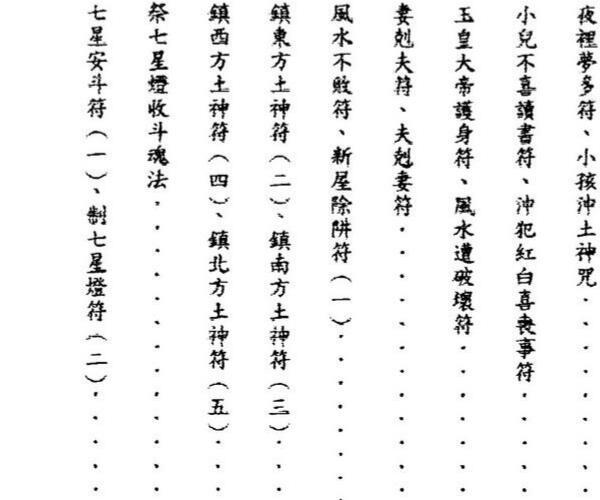 夜裡夢多符、小孩沖土神咒・・・・・・・・・
小兒不喜讀書符、沖犯紅白喜喪事符・・・・・
玉皇大帝護身符、風水遭破壞符・・・・・・・
妻剋夫符、夫剋妻符・・・・・・・・・・・・
風水不敗符、新屋除阱符(一)・・・・・・・
鎮東方土神符(二)、鎮南方土神符(三)・・・
鎮西方土神符(四)、鎮北方土神符(五)・・・
祭七星燈收斗魂法・・・・・・・・・・・・・
七星安斗符(一)、制七星燈符(二)・・・・・